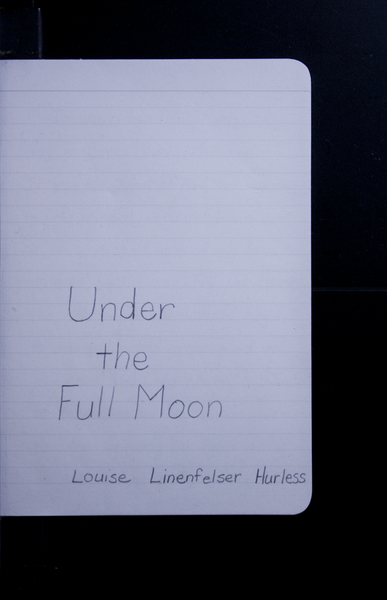 Under
the
Full Moon
Louise Linenfelser Hurless